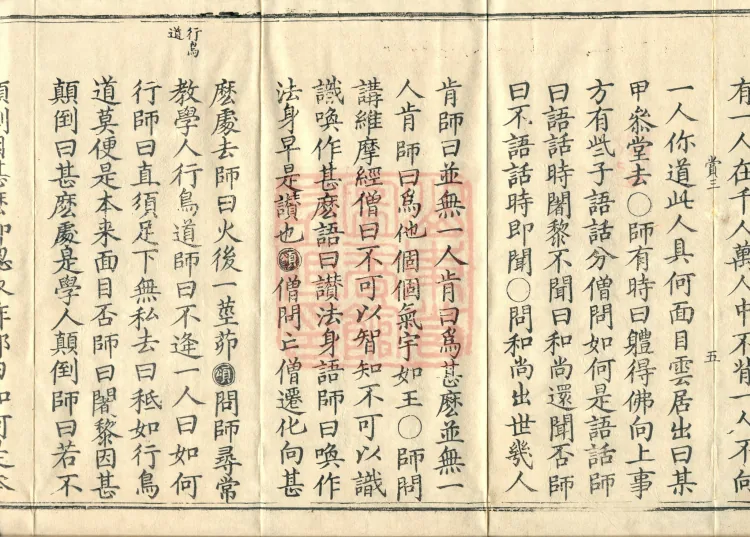 有一人在千人萬人中不背一人不向
賞三
五
一人你道此人具何面目雲居出曰某
甲叅堂去〇師有時曰軆得佛向上事
方有些子語話分僧問如何是語話師
曰語話時闍黎不聞曰和尚還聞否師
曰不語話時即聞〇問和尚出世幾人
肯師曰並無一人肯曰爲甚麽並無一
人肯師曰爲他個個氣宇如王〇師問
講維摩經僧曰不可以智知不可以識
識喚作甚麽語曰讃法身語師曰喚作
法身早是讃也頌僧問亡僧遷化向甚
麽處去師曰火後一莖茆頌問師尋常
行鳥道
教學人行鳥道師曰不逢一人曰如何
行師曰直須足下無私去曰秪如行鳥
道莫便是本来面目否師曰闍黎因甚
顛倒曰甚麽處是學人顛倒師曰若不